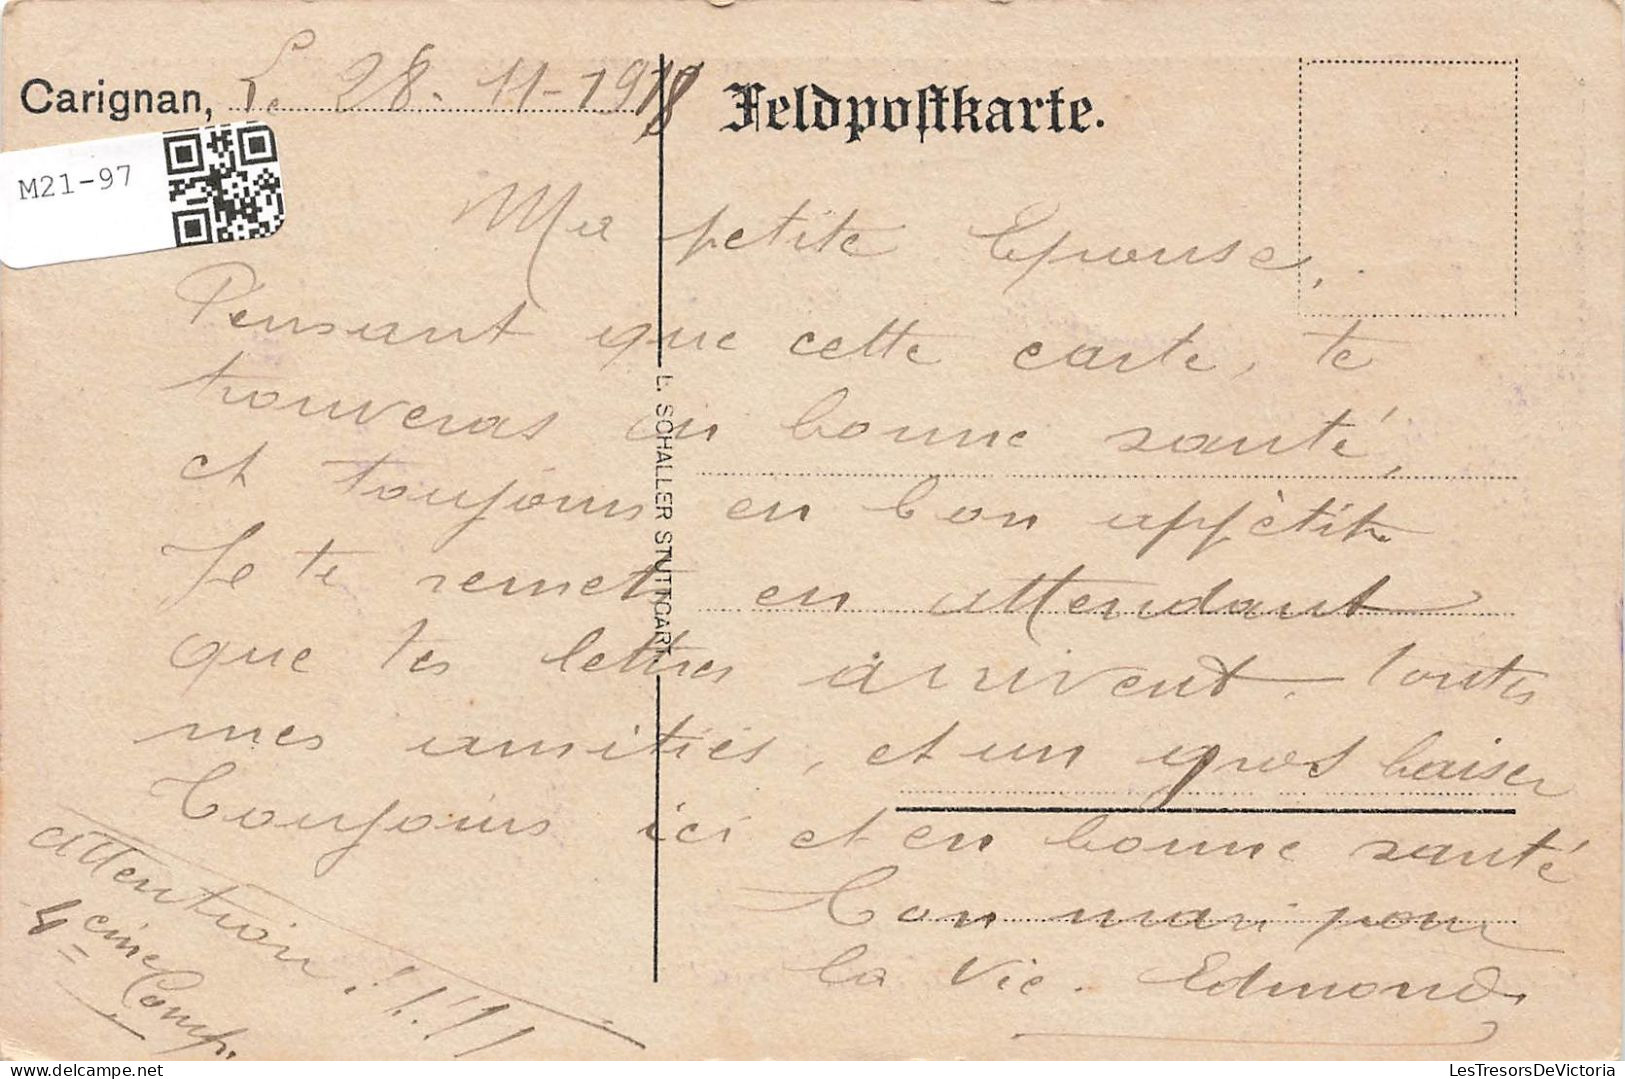 Carignan, L. 28. 11-1918
Feldpostkarte.
M21-97
Ma petite Epouse,
Pensant que cette carte, te
trouveras en bonne santé,
et toujours en bon appétit
Je te remets en attendant
que tes lettres arrivent. Toutes
mes amitiés, et un gros baiser
Toujours ici et en bonne santé
Ton mari pour
la vie. Edmond
attention !!!!
4eme Comp.
L. SCHALLER STUTTGART.
© Delcampe.net
LesTresorsDeVictoria